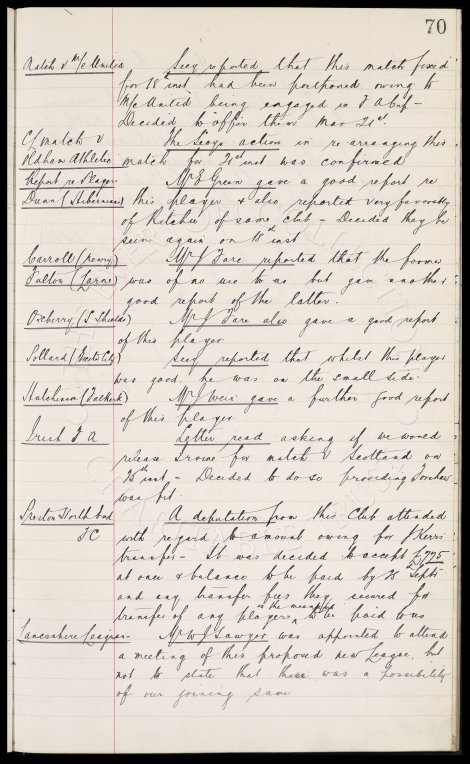 70
Match v M/c United Secy reported that this match fixed
for 18th inst had been postponed owing to
M/c United being engaged in F A Cup -
Decided to offer them Mar 21st.
C/ match v The Secys action in re-arranging this
Oldham Athletic match for 21st inst was confirmed
Report re Player Mr E Green gave a good report re
Dunn (Hibernian) this player & also reported very favorably
of Ritchie of same club - Decided they be
seen again on 18th inst
Carroll (Newry) Mr J Fare reported that the former
Fulton (Larne) was of no use to us but gave another
good report of the latter.
Oxberry (S Shields) Mr J Fare also gave a good report
of this player
Pollard (Exeter City) Secy reported that whilst this player
was good he was on the small side.
Hutchinson Mr J Weir gave a further good report
of this player
Irish F A Letter read asking if we would
release for match v Scotland on
25th inst - Decided to do so providing
was fit
Preston North End A deputation from this Club attended
F C with regard to amount owing for J Kerrs
transfer - It was decided to accept £775
at once & balance to be paid by 28 Septr
and any transfer fees they secured for
transfer of any players in the meantime to be paid to us
Lancashire League Mr W J Sawyer was appointed to attend
a meeting of this proposed new League but
not to state that there was a possibility
of our joining same